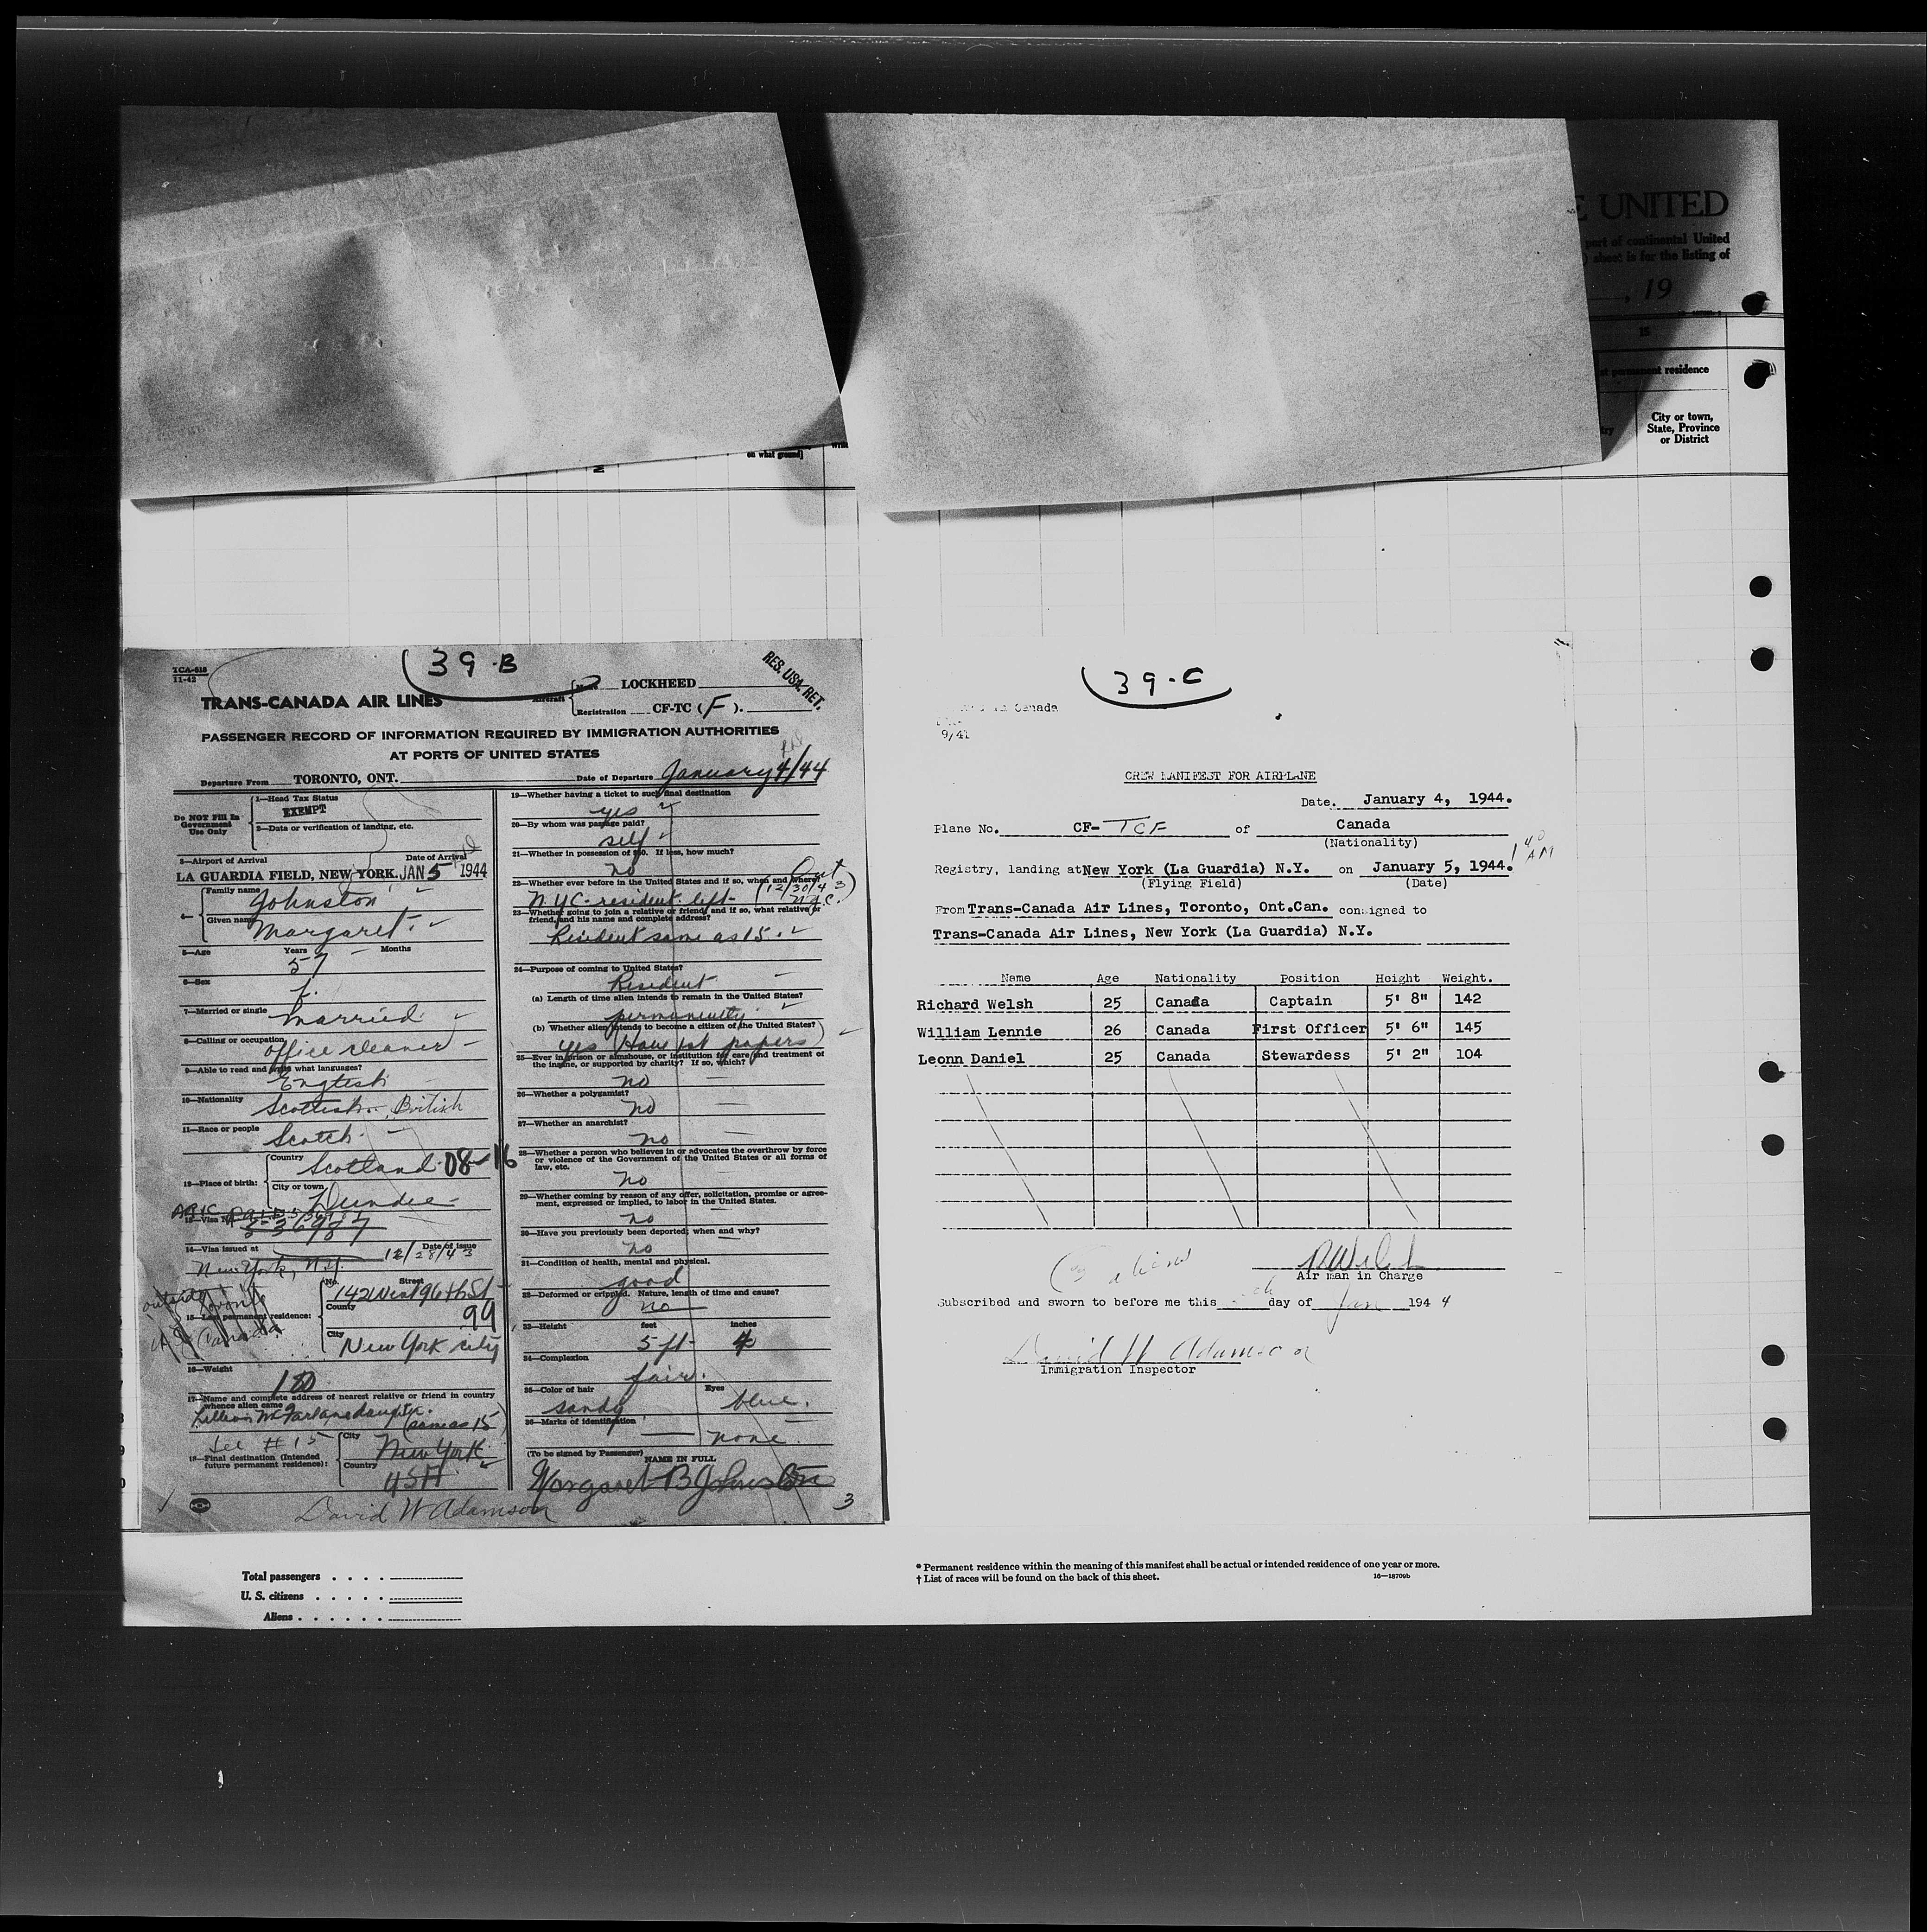 E UNITED
port of continental United
) sheet is for the listing of
, 19
15
permanent residence
City or town,
State, Province
or District
on what ground]
39-B
TCA-618
11-42
RES. USA. RET.
TRANS-CANADA AIR LINES
Aircraft LOCKHEED
Registration CF-TC (F).
PASSENGER RECORD OF INFORMATION REQUIRED BY IMMIGRATION AUTHORITIES
AT PORTS OF UNITED STATES
Departure From TORONTO, ONT. Date of Departure January 4/44
Do NOT Fill In
Government
Use Only
1—Head Tax Status
EXEMPT
2—Data or verification of landing, etc.
3—Airport of Arrival Date of Arrival
LA GUARDIA FIELD, NEW YORK. JAN 5 1944
4— Family name Johnston
Given name Margaret
5—Age Years Months
57
6—Sex f.
7—Married or single married
8—Calling or occupation office cleaner
9—Able to read and write what languages?
English
10—Nationality Scottish British
11—Race or people Scotch
12—Place of birth: Country Scotland 08-16
City or town Dundee
536987
14—Visa issued at Date of issue
New York, N.Y. 12/28/43
outside Toronto
Canada
15—Last permanent residence:
No. Street
142 West 96th St
County
99
City New York city
16—Weight
17—Name and complete address of nearest relative or friend in country
whence alien came
Lillian McFarlane daughter. (same as 15)
See #15
18—Final destination (Intended
future permanent residence):
City New York
Country USA
David W Adamson
19—Whether having a ticket to such final destination
yes
20—By whom was passage paid?
self
21—Whether in possession of $50. If less, how much?
no
22—Whether ever before in the United States and if so, when and where?
N.Y.C. resident left (12/30/43
23—Whether going to join a relative or friend, and if so, what relative or
friend, and his name and complete address?
Resident same as 15.
24—Purpose of coming to United States?
Resident
(a) Length of time alien intends to remain in the United States?
permanently
(b) Whether alien intends to become a citizen of the United States?
yes (Have 1st papers)
25—Ever in prison or almshouse, or institution for care and treatment of
the insane, or supported by charity? If so, which?
no
26—Whether a polygamist?
no
27—Whether an anarchist?
no
28—Whether a person who believes in or advocates the overthrow by force
or violence of the Government of the United States or all forms of
law, etc.
no
29—Whether coming by reason of any offer, solicitation, promise or agree-
ment, expressed or implied, to labor in the United States.
no
30—Have you previously been deported; when and why?
no
31—Condition of health, mental and physical.
good
32—Deformed or crippled. Nature, length of time and cause?
no
33—Height feet inches
5 ft 4
34—Complexion
fair.
35—Color of hair Eyes
sandy blue.
36—Marks of identification
none
(To be signed by Passenger) NAME IN FULL
Margaret B Johnston
3
39-C
Canada
9/41
CREW MANIFEST FOR AIRPLANE
Date. January 4, 1944.
Plane No. CF- TCF of Canada
(Nationality)
Registry, landing at New York (La Guardia) N.Y. on January 5, 1944. 1 40 AM
(Flying Field) (Date)
From Trans-Canada Air Lines, Toronto, Ont.Can. consigned to
Trans-Canada Air Lines, New York (La Guardia) N.Y.
Name Age Nationality Position Height Weight.
Richard Welsh 25 Canada Captain 5' 8" 142
William Lennie 26 Canada First Officer 5' 6" 145
Leonn Daniel 25 Canada Stewardess 5' 2" 104
RWelsh
Air man in Charge
Subscribed and sworn to before me this day of Jan 1944
David W Adamson
Immigration Inspector
Total passengers . . . .
U. S. citizens . . . . .
Aliens . . . . . .
* Permanent residence within the meaning of this manifest shall be actual or intended residence of one year or more.
† List of races will be found on the back of this sheet. 16—18709b